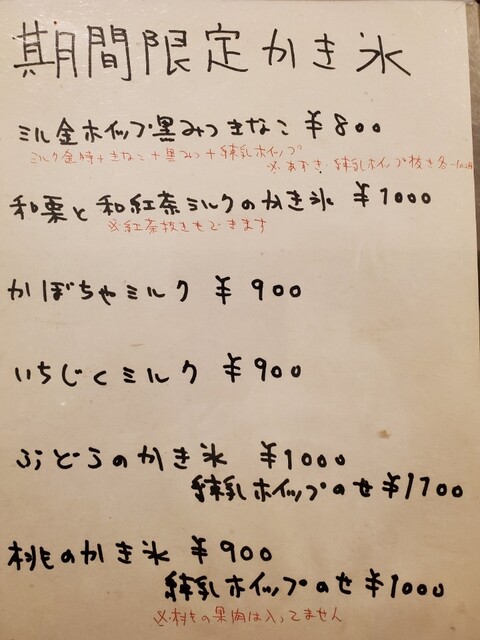 期間限定かき氷
ミル金ホイップ黒みつきなこ ¥800
ミルク金時+きなこ+黒みつ+練乳ホイップ
※あずき・練乳ホイップ抜き各-100円
和栗と和紅茶ミルクのかき氷 ¥1000
※紅茶抜きもできます
かぼちゃミルク ¥900
いちじくミルク ¥900
ぶどうのかき氷 ¥1000
練乳ホイップのせ ¥1100
桃のかき氷 ¥900
練乳ホイップのせ ¥1000
※桃の果肉は入ってません